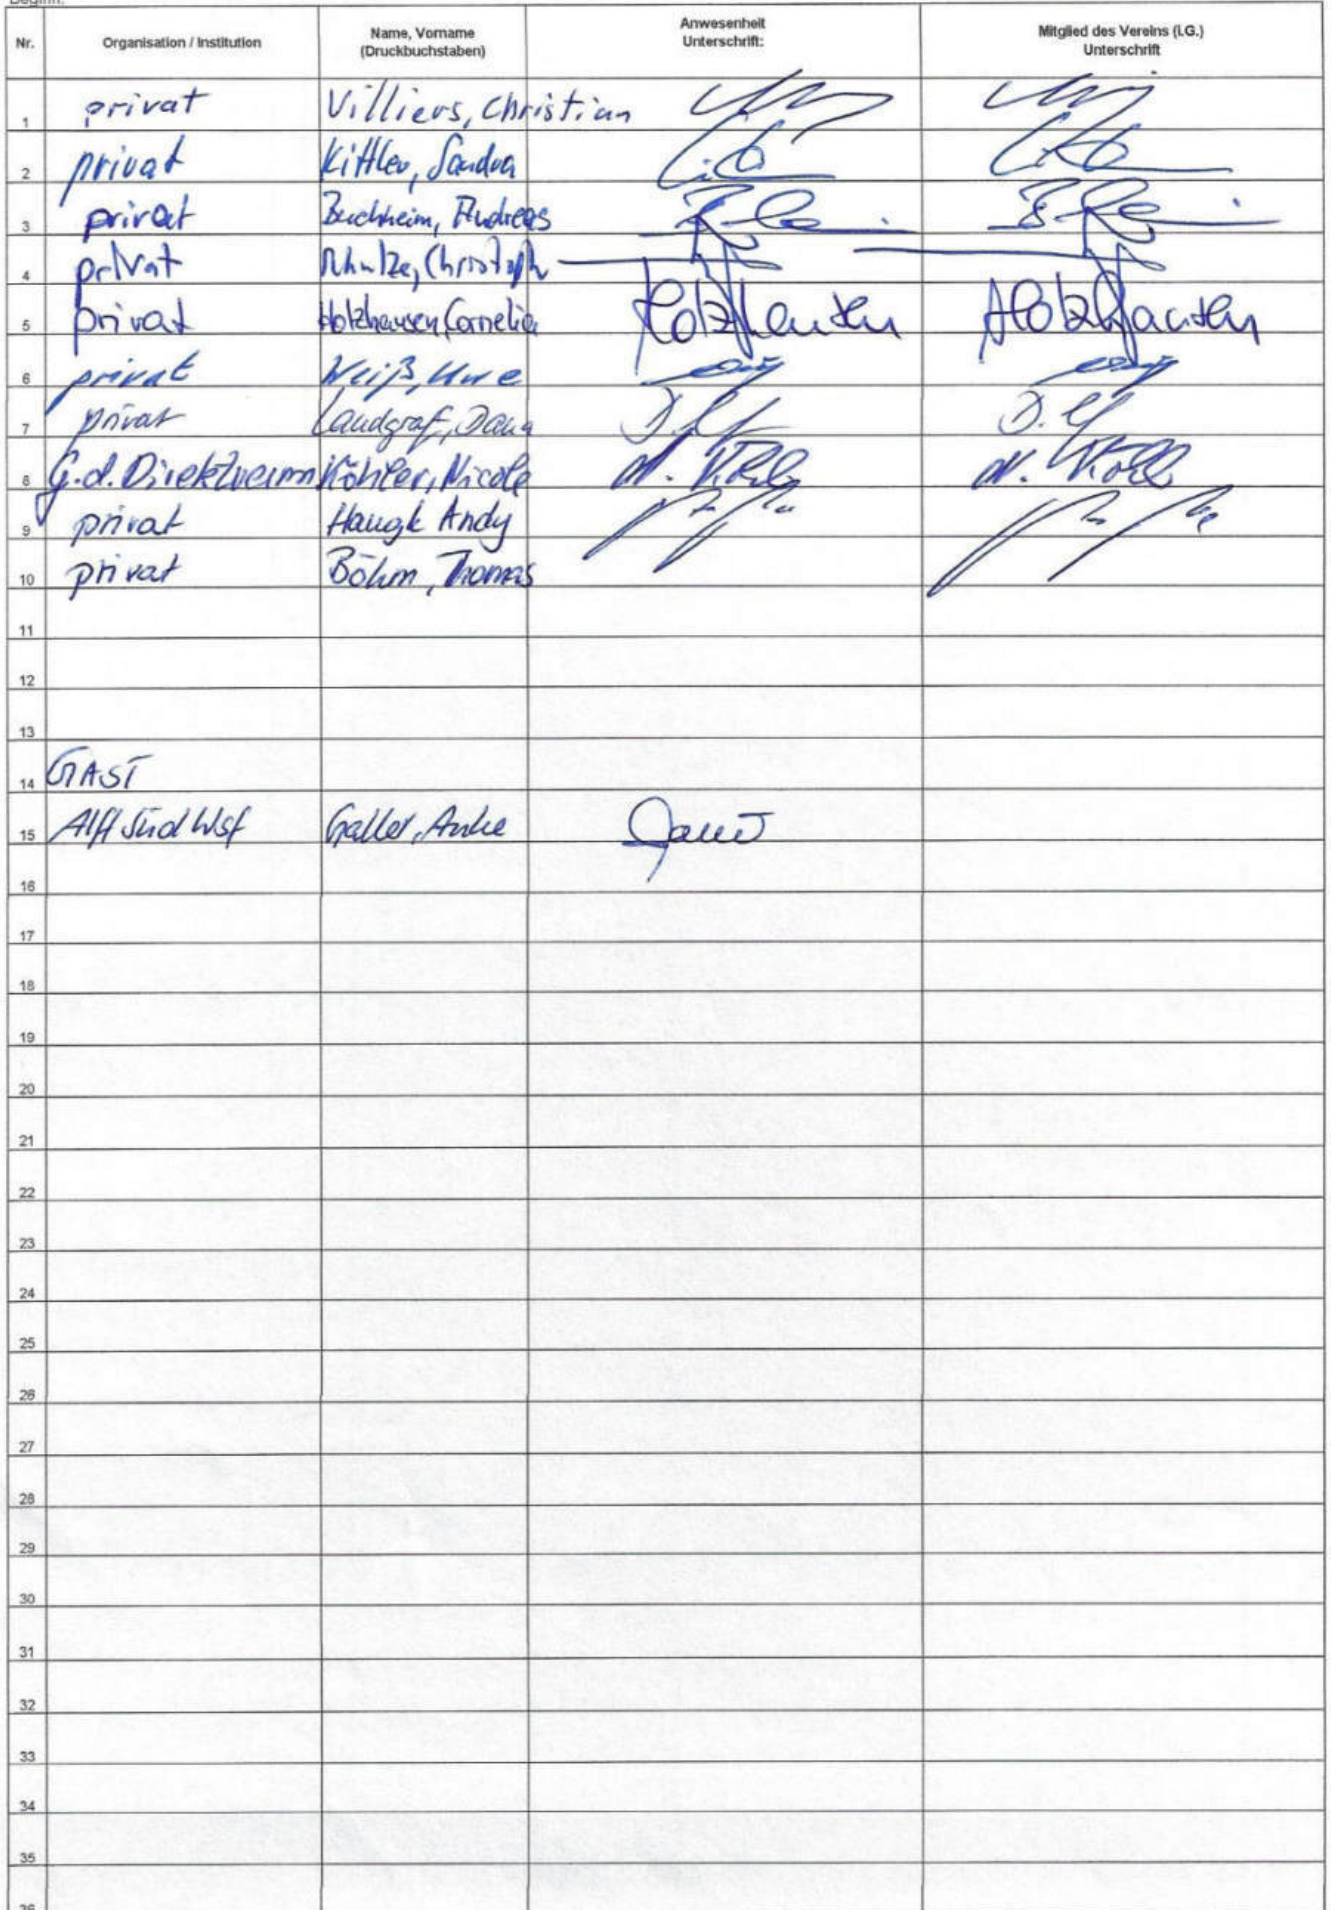 Beginn:
Nr. Organisation / Institution Name, Vorname (Druckbuchstaben) Anwesenheit Unterschrift: Mitglied des Vereins (i.G.) Unterschrift
1 privat Villiers, Christian
2 privat Kittler, Sandra
3 privat Buchheim, Andreas
4 privat Christoph
5 privat Holzhausen, Cornelia Holzhausen Holzhausen
6 privat Weiß, Uwe
7 privat Landgraf, Dana
8 G.d. Direktverm Köhler, Nicole N. Köhl N. Köhl
9 privat Haugk Andy
10 privat Böhm, Thomas
11
12
13
14 GAST
15 Alff Süd Wsf Galler, Anke
16
17
18
19
20
21
22
23
24
25
26
27
28
29
30
31
32
33
34
35
36